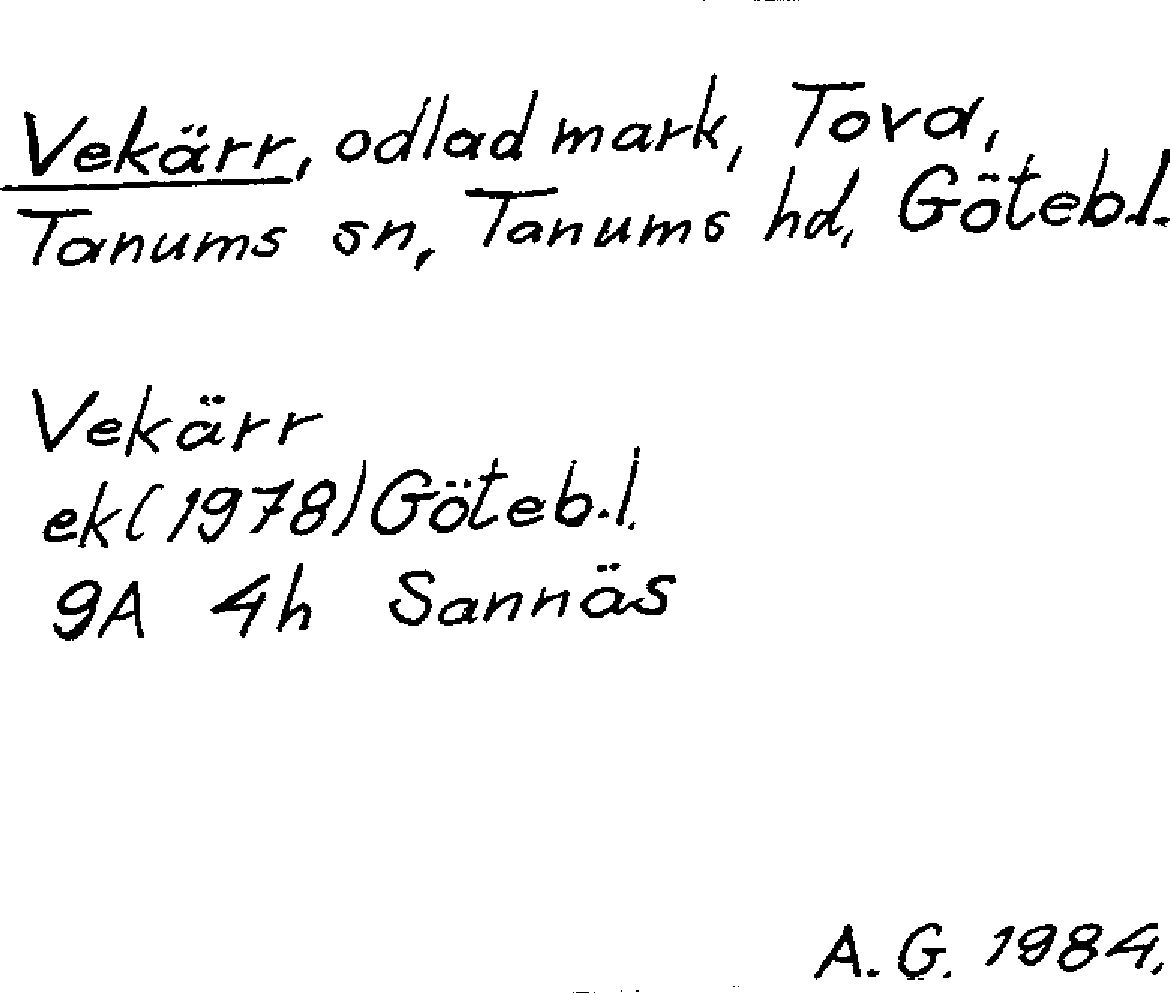 Vekärr, odlad mark, Tova,
Tanums sn, Tanums hd, Göteb.l.
Vekärr
ek (1978) Göteb.l.
9A 4h Sannäs
A.G. 1984.